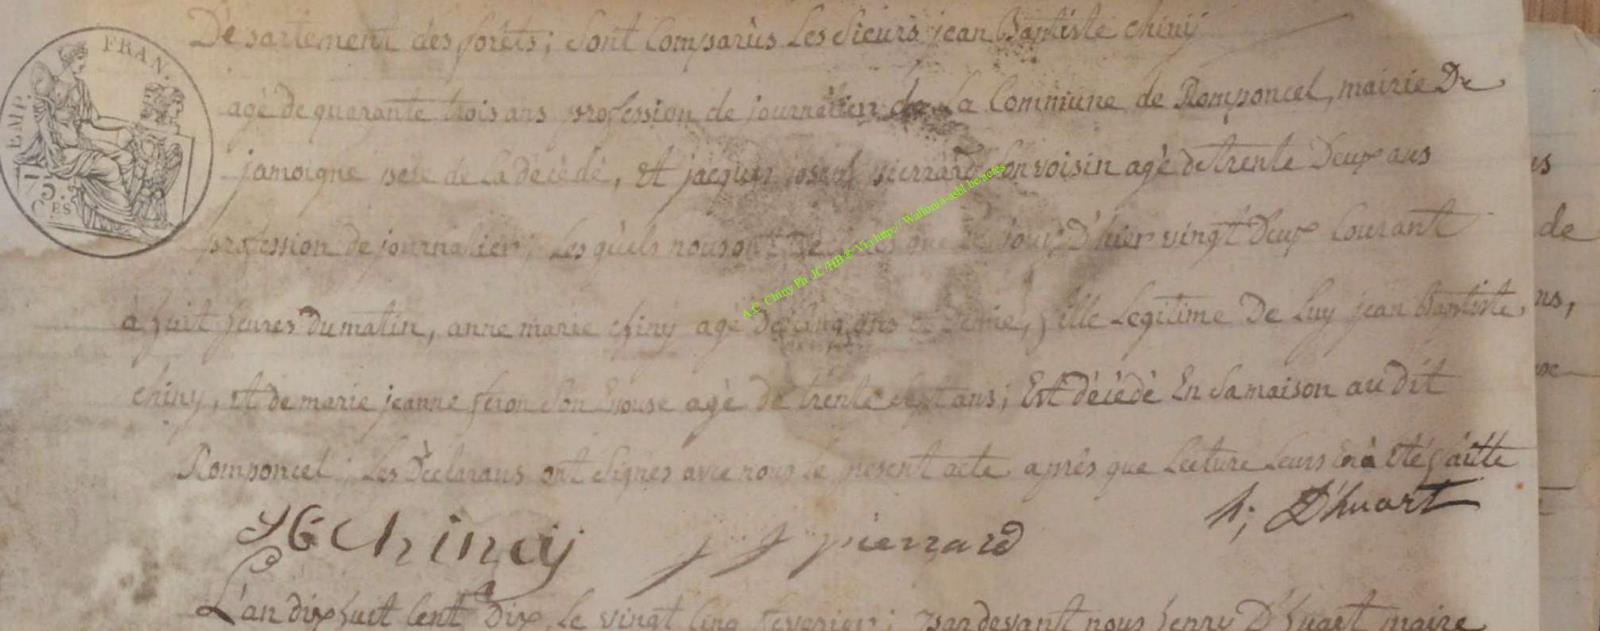 Département des forêts; sont Comparùs Les Sieurs jean Baptiste chiny
agé de quarante trois ans profession de journalier de La Commune de Romponcel, mairie De
EMP. FRAN.
75 CES
jamoigne pere de La décédé, Et jacques joseph pierrard son voisin agé de trente Deux ans
profession de journalier; Les quels nous ont Déclaré que le jour D'hier vingt Deux Courant
à huit heures du matin, anne marie chiny agé de Cinq ans et Demie, fille Legitime De Luy jean Baptiste
chiny, Et de marie jeanne feron Son Epouse agé de trente sept ans; Est décédé En Sa maison au dit
Romponcel; Les Déclarans ont Signés avec nous le present acte après que Lecture Leurs En à Eté faitte
JB Chiny j j pierrard h; D'huart
L'an dix huit Cent Dix, Le vingt Cinq fevrier; pardevant nous henry D'huart maire
A.C. Chiny Ph JC /HB & Via http:// Wallonia-asbl.be.actes